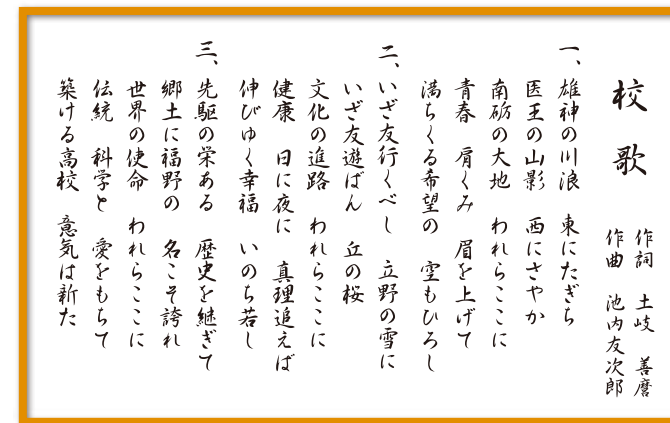 校歌
作詞　土岐　善麿
作曲　池内友次郎
一、雄神の川浪　東にたぎち
医王の山影　西にさやか
南砺の大地　われらここに
青春　肩くみ　眉を上げて
満ちくる希望の　空もひろし
二、いざ友行くべし　立野の雪に
いざ友遊ばん　丘の桜
文化の進路　われらここに
健康　日に夜に　真理追えば
伸びゆく幸福　いのち若し
三、先駆の栄ある　歴史を継ぎて
郷土に福野の　名こそ誇れ
世界の使命　われらここに
伝統　科学と　愛をもちて
築ける高校　意気は新た